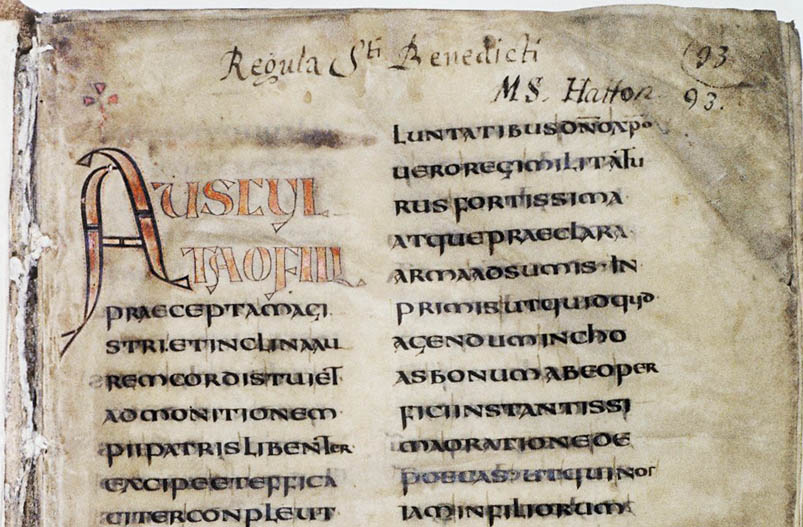 Regula Sti Benedicti
MS. Hatton 93.
93
AUSCUL
TAOFILI
PRAECEPTAMAGI
STRI·ETINCLINAAU
REMCORDISTUIET
ADMONITIONEM
PIIPATRISLIBENTER
EXCIPEETEFFICA
CITERCONPLEUT
LUNTATIBUSDNOXPO
UEROREGIMILITATU
RUSFORTISSIMA
ATQUEPRAECLARA
ARMAADSUMIS·IN
PRIMISUTQUIDQUID
AGENDUMINCHO
ASBONUMABEOPER
FICIINSTANTISSI
MAORATIONEDE
POSCAS·UTQUINOS
IAMINFILIORUM